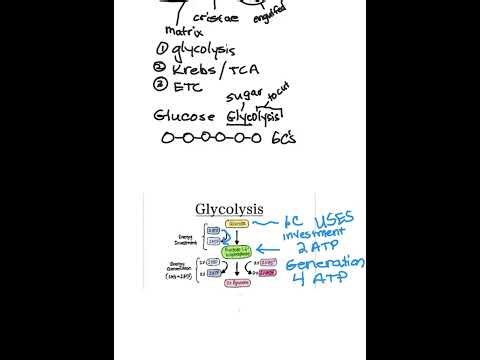 cristae engulfed
matrix
① glycolysis
② Krebs/TCA
③ ETC
sugar to cut
Glucose Glycolysis
6C's
Glycolysis
6C USES
investment
2 ATP
Generation
4 ATP
Glucose
Energy
Investment
Energy
Generation
2x Pyruvate